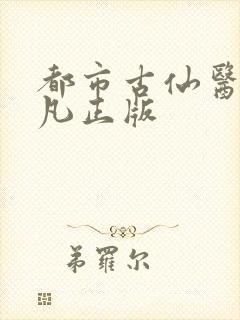 都市古仙醫
凡正版
弟羅尔